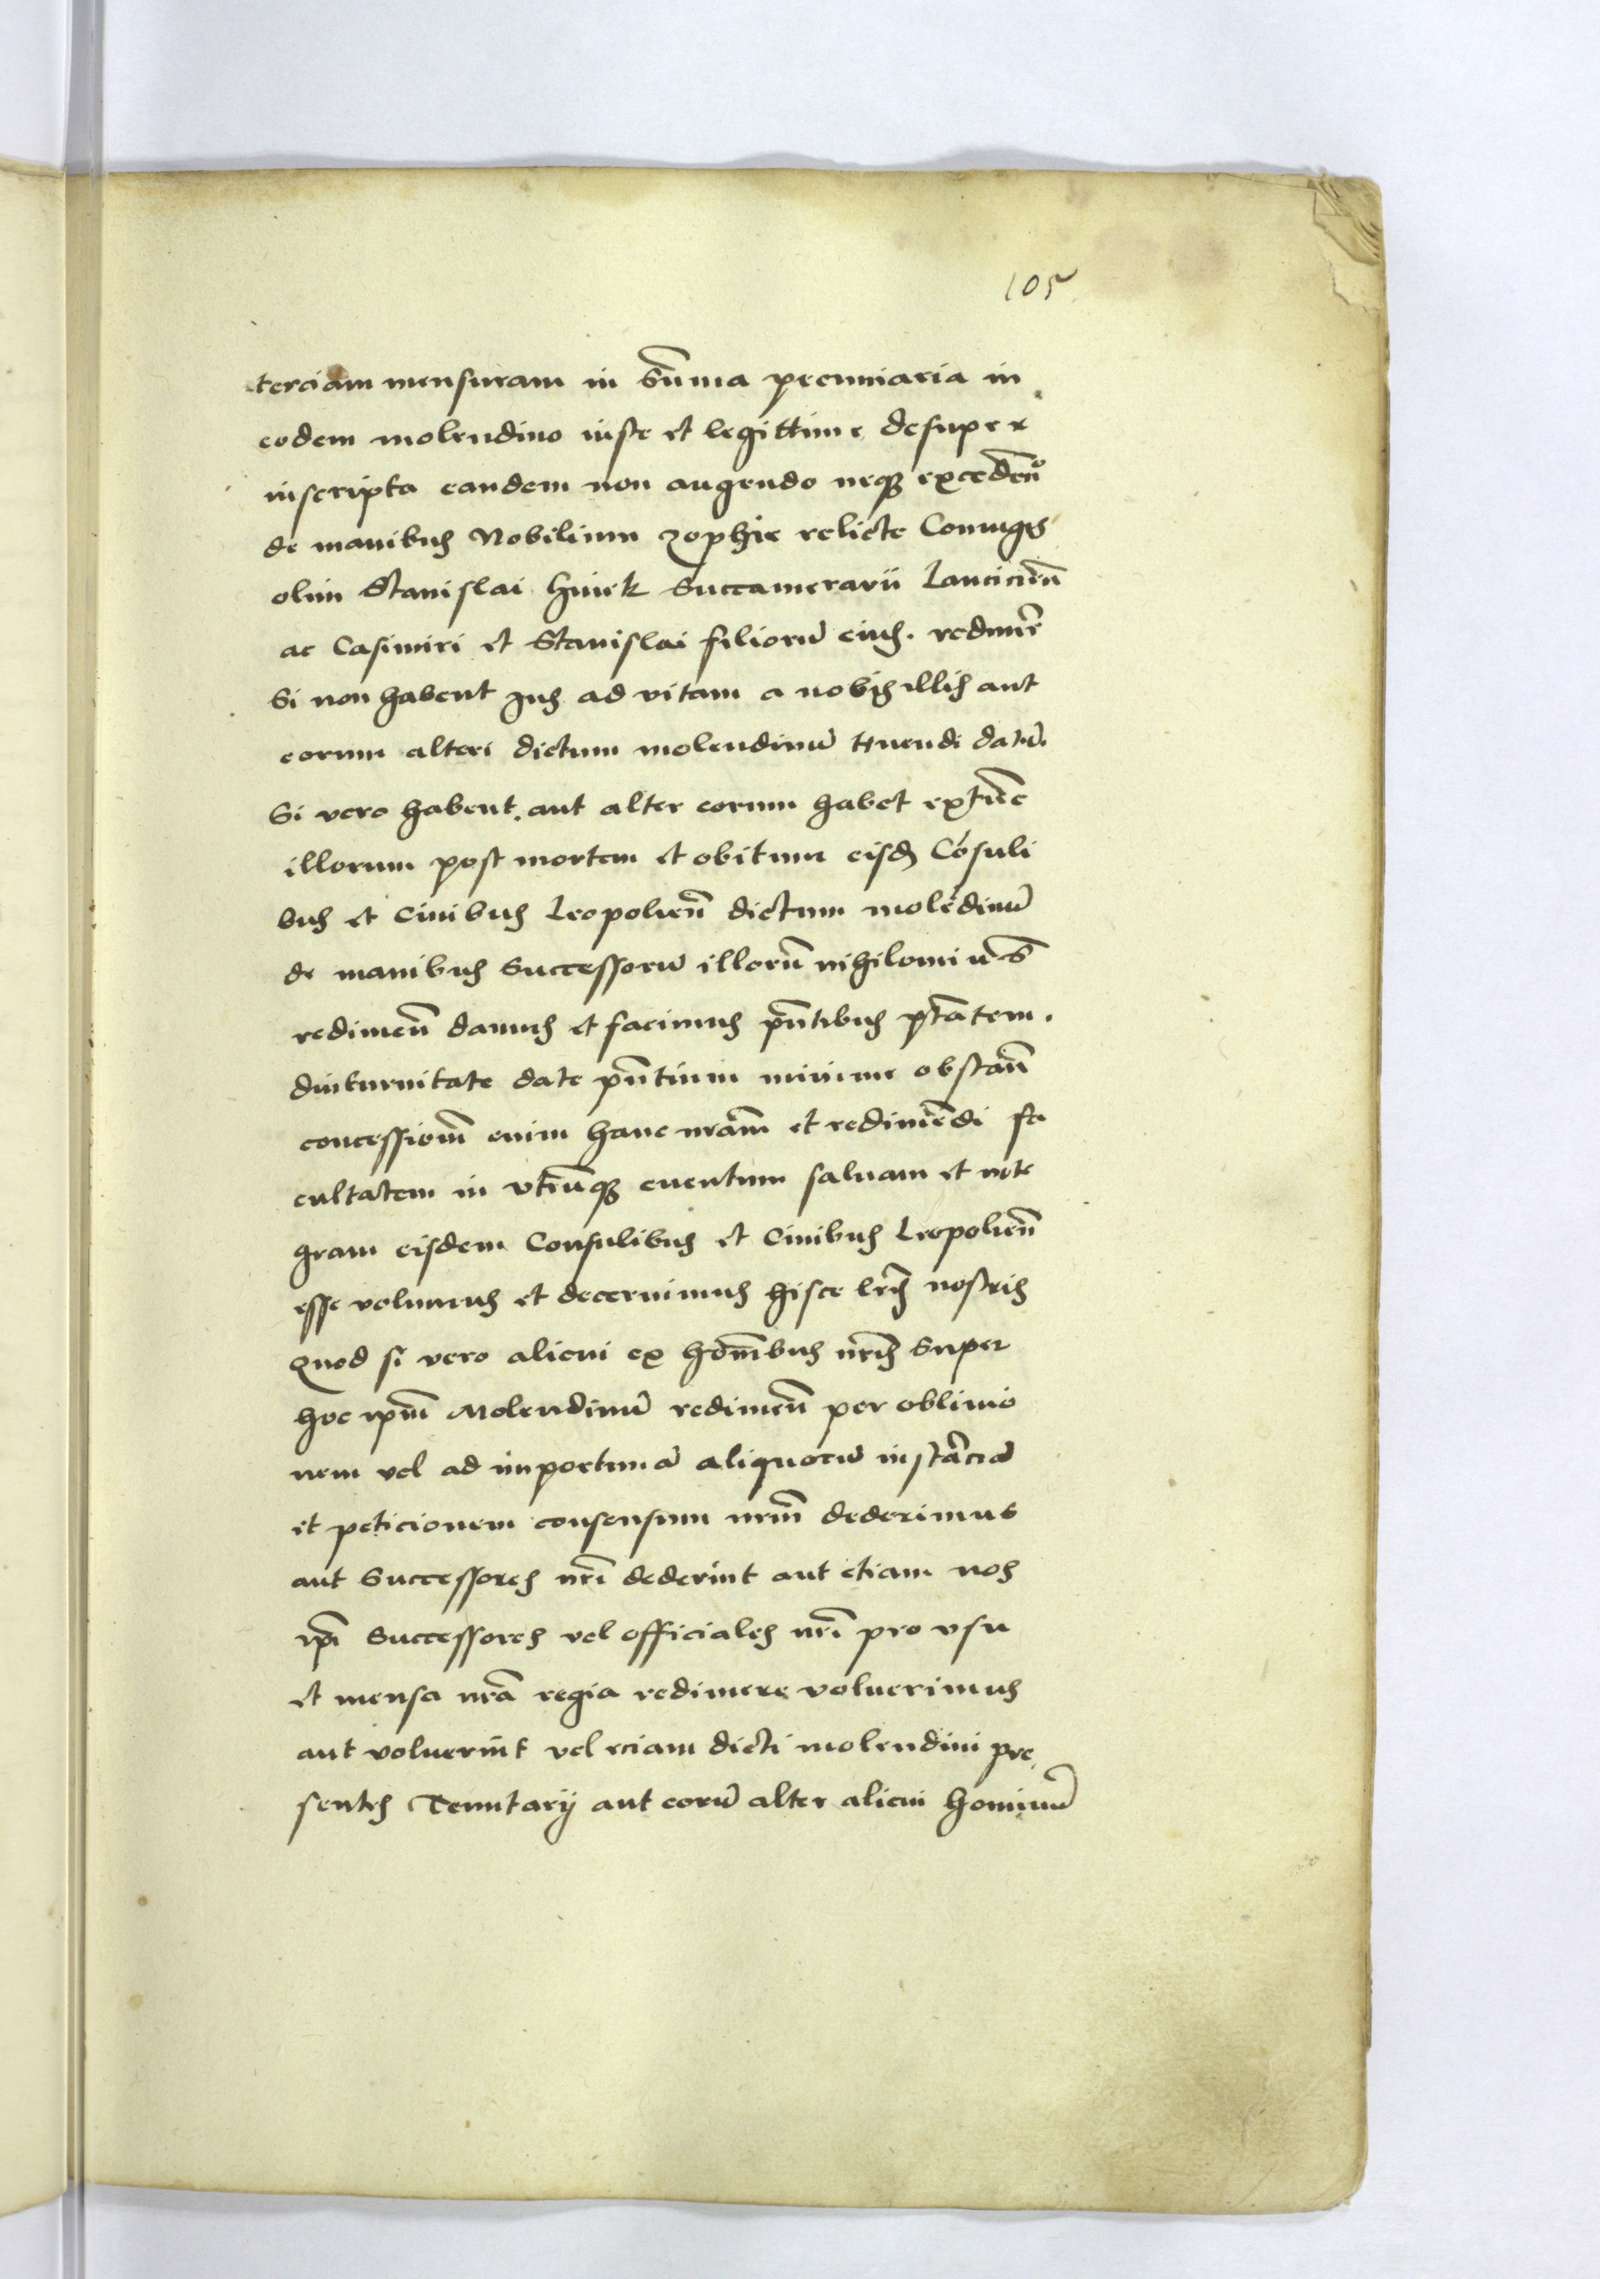 105
terciam mensuram in su̅ma pecuniaria in
eodem molendino iuste et legittime desuper
inscripta eandem non augendo neq̨ excede̅do
de manibus Nobilium Zophie relicte Coniugis
olim Stanislai hinek Succamerarii Lancicien̅
ac Casimiri et Stanislai filioru̅ eius. redimer̅
Si non habent Jus ad vitam a nobis illis aut
eorum alteri dictum molendinu̅ tenendi datu̅.
Si vero habent aut alter eorum habet extu̅c
illorum post mortem et obitum eisd̨ Co̅suli
bus et Ciuibus Leopolien̅ dictum mole̅dinu̅
de manibus Successoru̅ illoru̅ nihilomiu̅s
redimen̅ damus et facimus pn̅tibus pt̅atem.
diuturnitate date pn̅tium minime obstan̅
concessiom̅ enim hanc nr̅am et redime̅di fa
cultatem in vtru̅q̨ euentum saluam et inte
gram eisdem Consulibus et Ciuibus Leopolien̅
esse volumus et decernimus hisce lr̅is nostris
Quod si vero alicui ex ho̅ibus nr̅is super
hoc ipm̅ Molendinu̅ redimen̅ per obliuio
nem vel ad importuna̅ aliquoru̅ insta̅cia̅
et peticionem consensum nr̅m dederimus
aut Successores nr̅i dederint aut etiam nos
ipi̅ Successores vel officiales nr̅i pro vsu
et mensa nr̅a regia redimere voluerimus
aut voluerint vel eciam dicti molendini pre
sentes Tenutarij aut eoru̅ alter alicui hominu̅